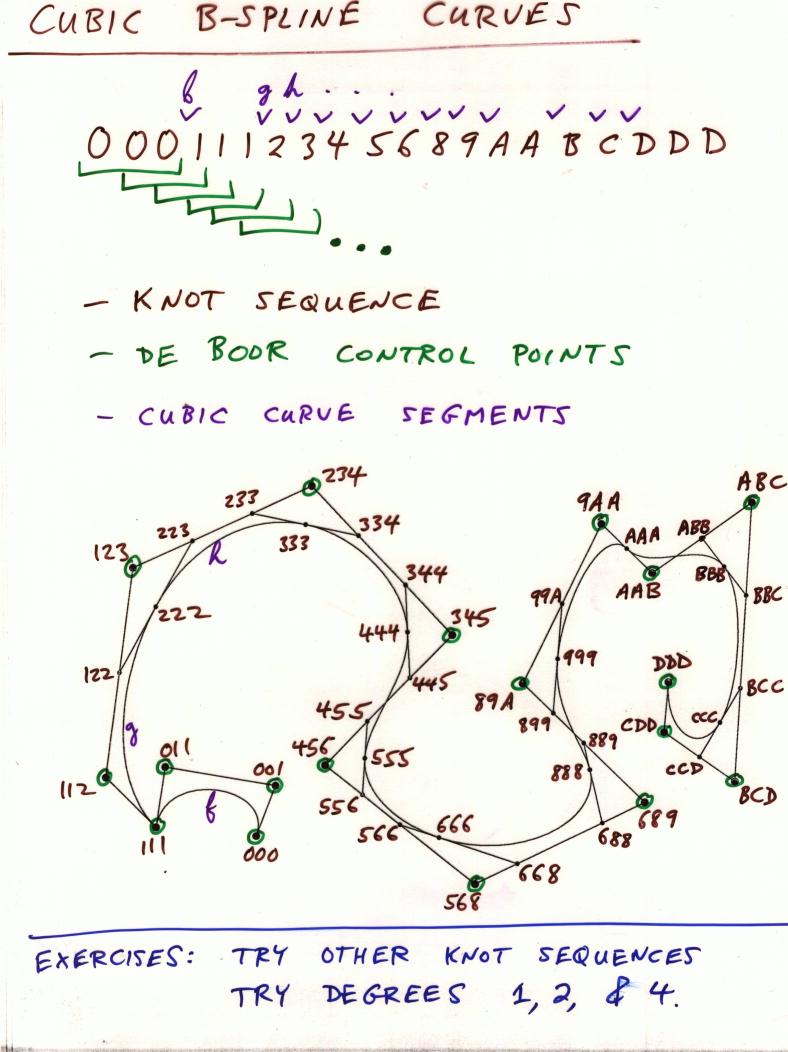 CUBIC B-SPLINE CURVES
f g h . . .
0 0 0 1 1 1 2 3 4 5 6 8 9 A A B C D D D
...
- KNOT SEQUENCE
- DE BOOR CONTROL POINTS
- CUBIC CURVE SEGMENTS
234
ABC
233
9AA
223
334
AAA
ABB
123
h
333
BBB
344
AAB
BBC
99A
222
444
345
DDD
999
122
445
BCC
89A
455
CDD
CCC
899
g
456
889
011
555
CCD
001
888
112
BCD
f
556
689
566
666
688
111
000
668
568
EXERCISES: TRY OTHER KNOT SEQUENCES
TRY DEGREES 1, 2, & 4.